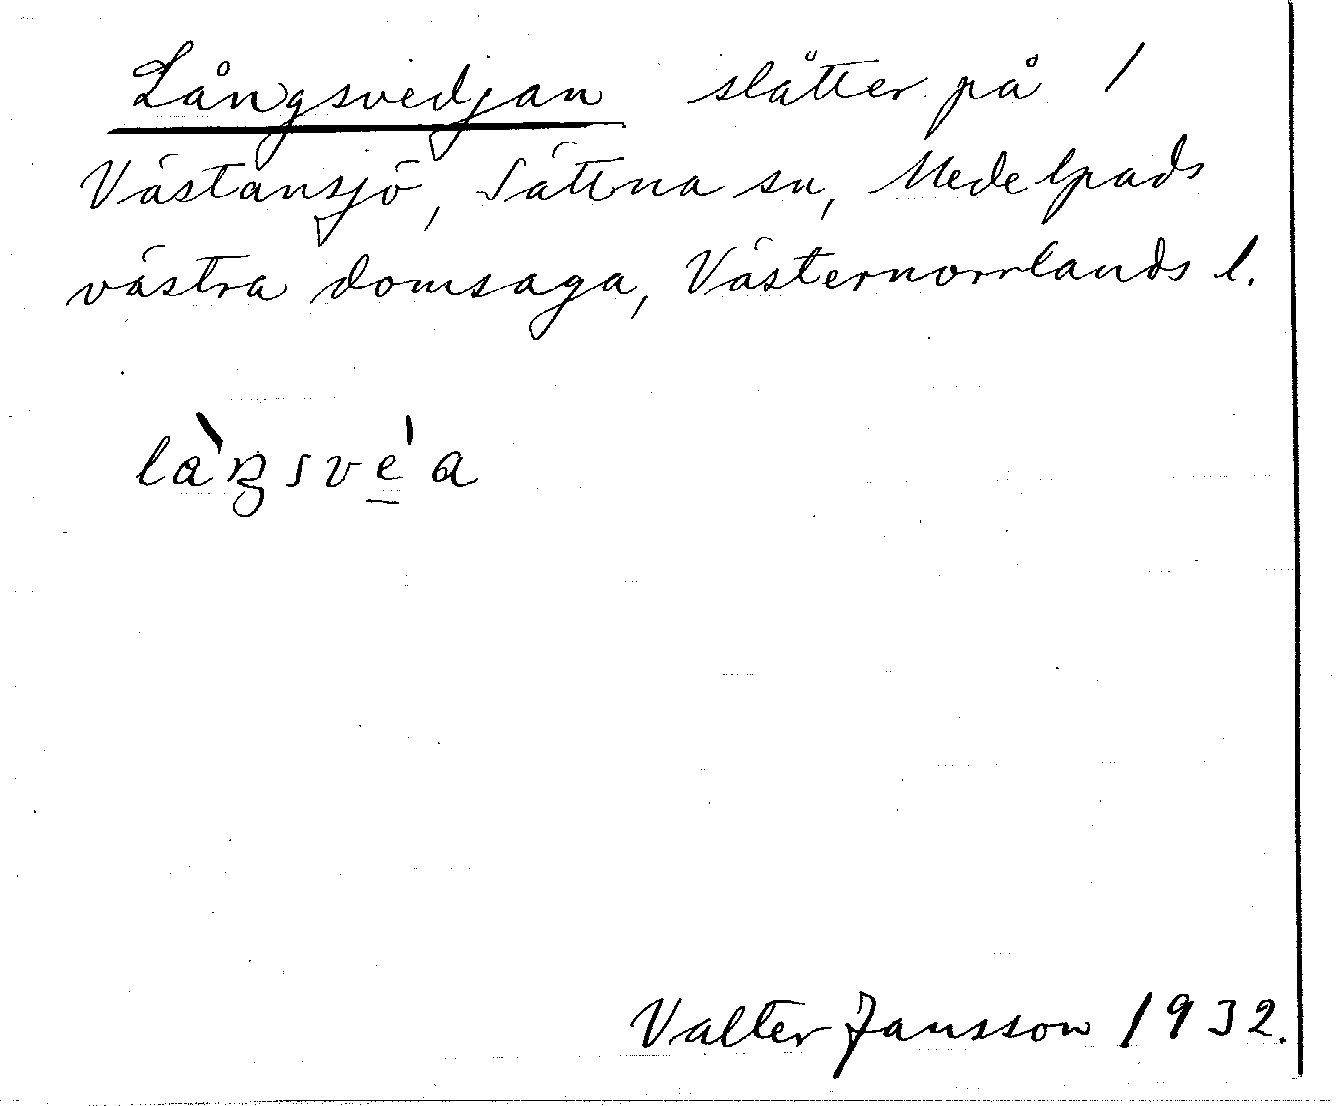 Långsvedjan slåtter på 1
Västansjö, Sättna sn, Medelpads
västra domsaga, Västernorrlands l.
là̀ŋsve̲̍a
Valter Jansson 1932.